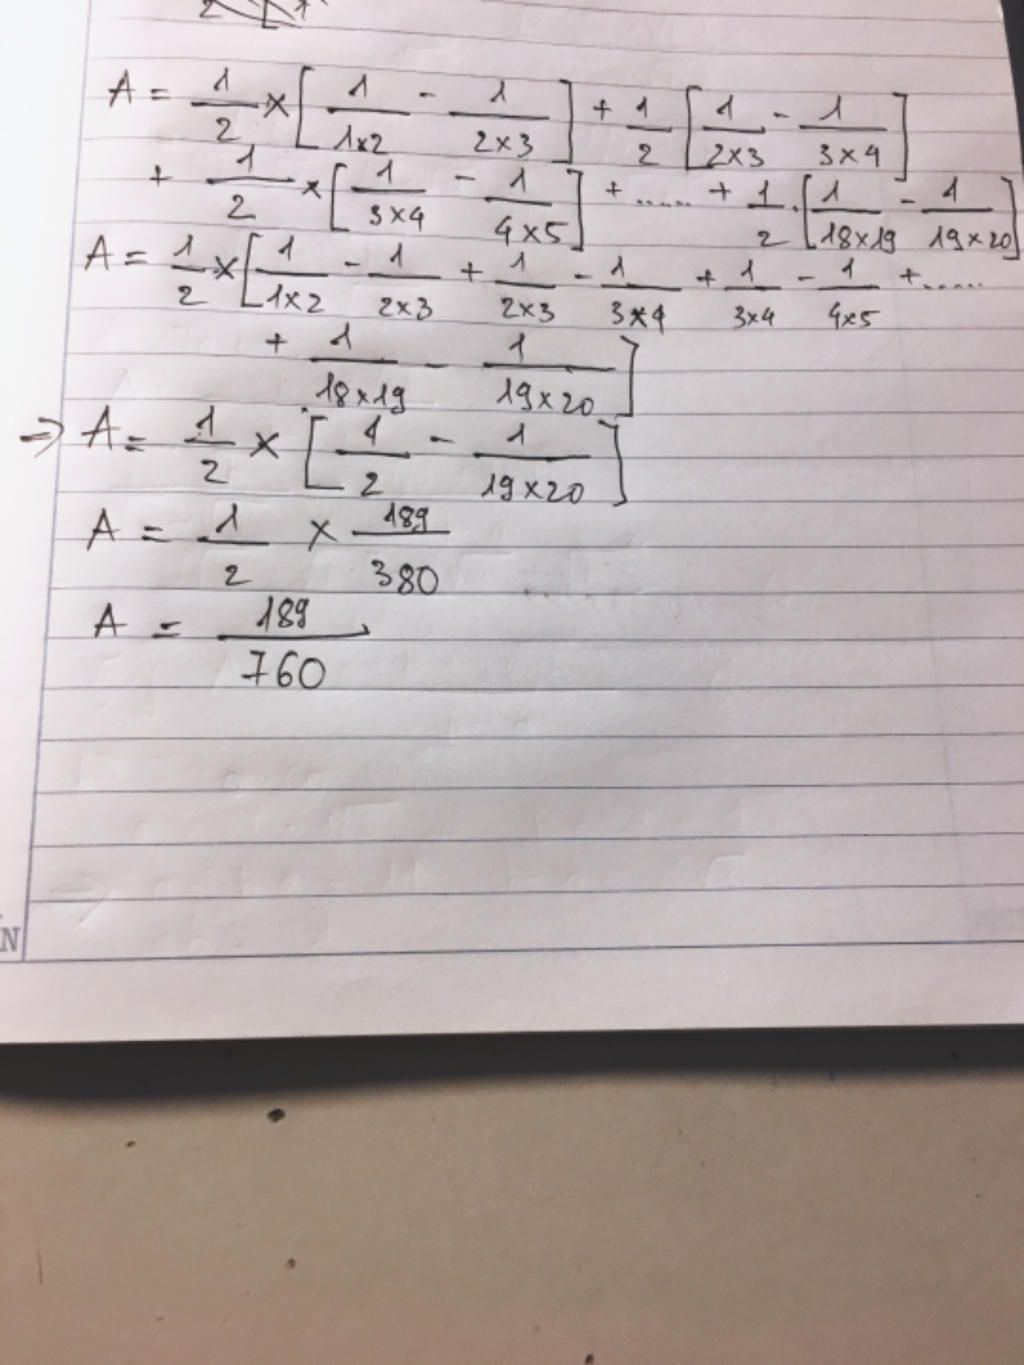 A = 1/2 × [1/1×2 - 1/2×3] + 1/2 [1/2×3 - 1/3×4]
+ 1/2 × [1/3×4 - 1/4×5] + ...... + 1/2 . [1/18×19 - 1/19×20]
A = 1/2 × [1/1×2 - 1/2×3 + 1/2×3 - 1/3×4 + 1/3×4 - 1/4×5 + ......
+ 1/18×19 - 1/19×20]
=> A = 1/2 × [1/2 - 1/19×20]
A = 1/2 × 189/380
A = 189/760
N